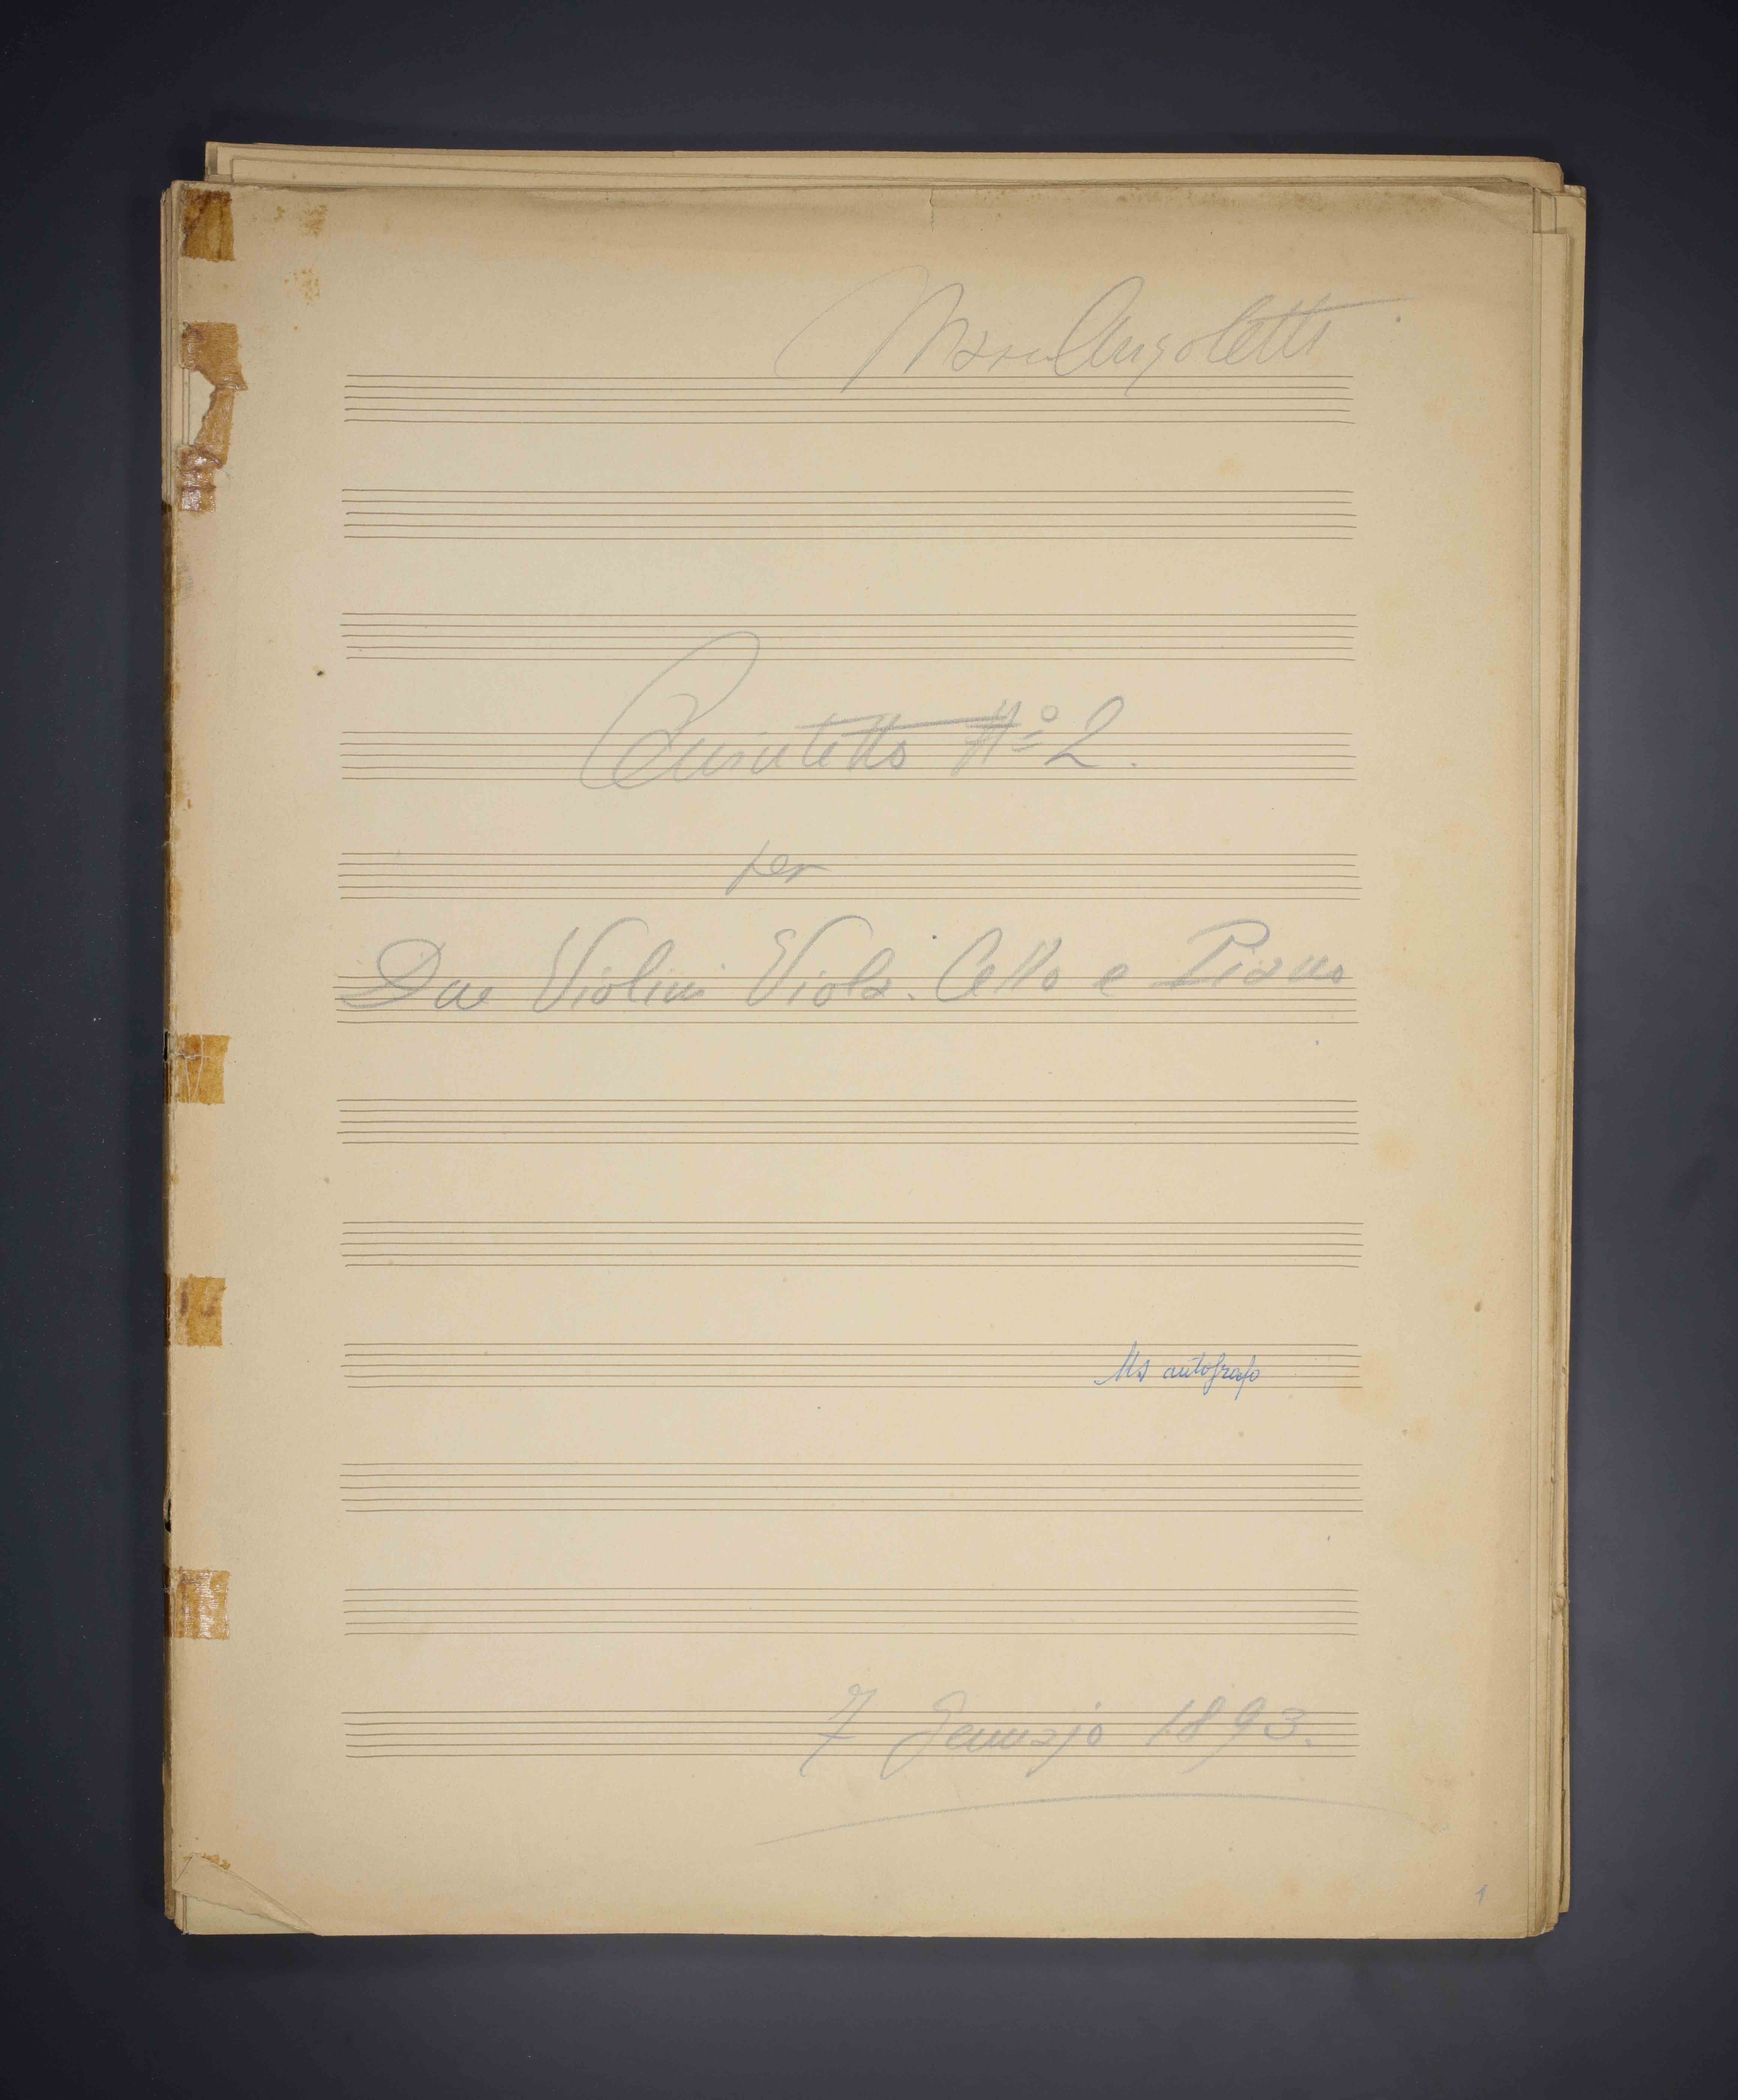 Marco Anzoletti
Quintetto Nº 2.
per
Due Violini Viola. Cello e Piano
Ms autografo
7 Gennajo 1893.
1